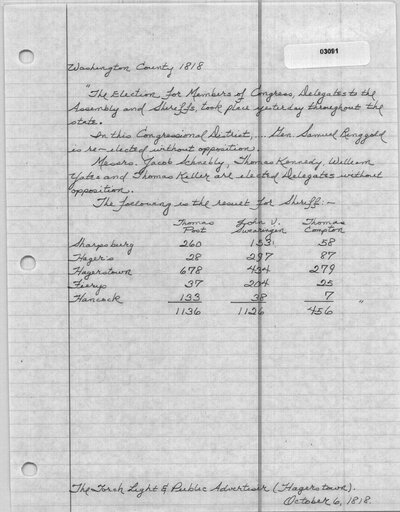 03091
Washington County 1818
"The Election for Members of Congress, Delegates to the
Assembly and Sheriffs, took place yesterday throughout the
state.
In this Congressional District, .... Gen. Samuel Ringgold
is re-elected without opposition.
Messrs. Jacob Schnebly, Thomas Kennedy, William
Yates and Thomas Keller are elected Delegates without
opposition.
The following is the result for Sheriff:-
Thomas John V. Thomas
Post Swearingen Compton
Sharpsburg 260 153 58
Hager's 28 297 87
Hagerstown 678 434 279
37 204 25
Hancock 133 38 7 "
1136 1126 456
The Torch Light & Public Advertiser (Hagerstown).
October 6, 1818.